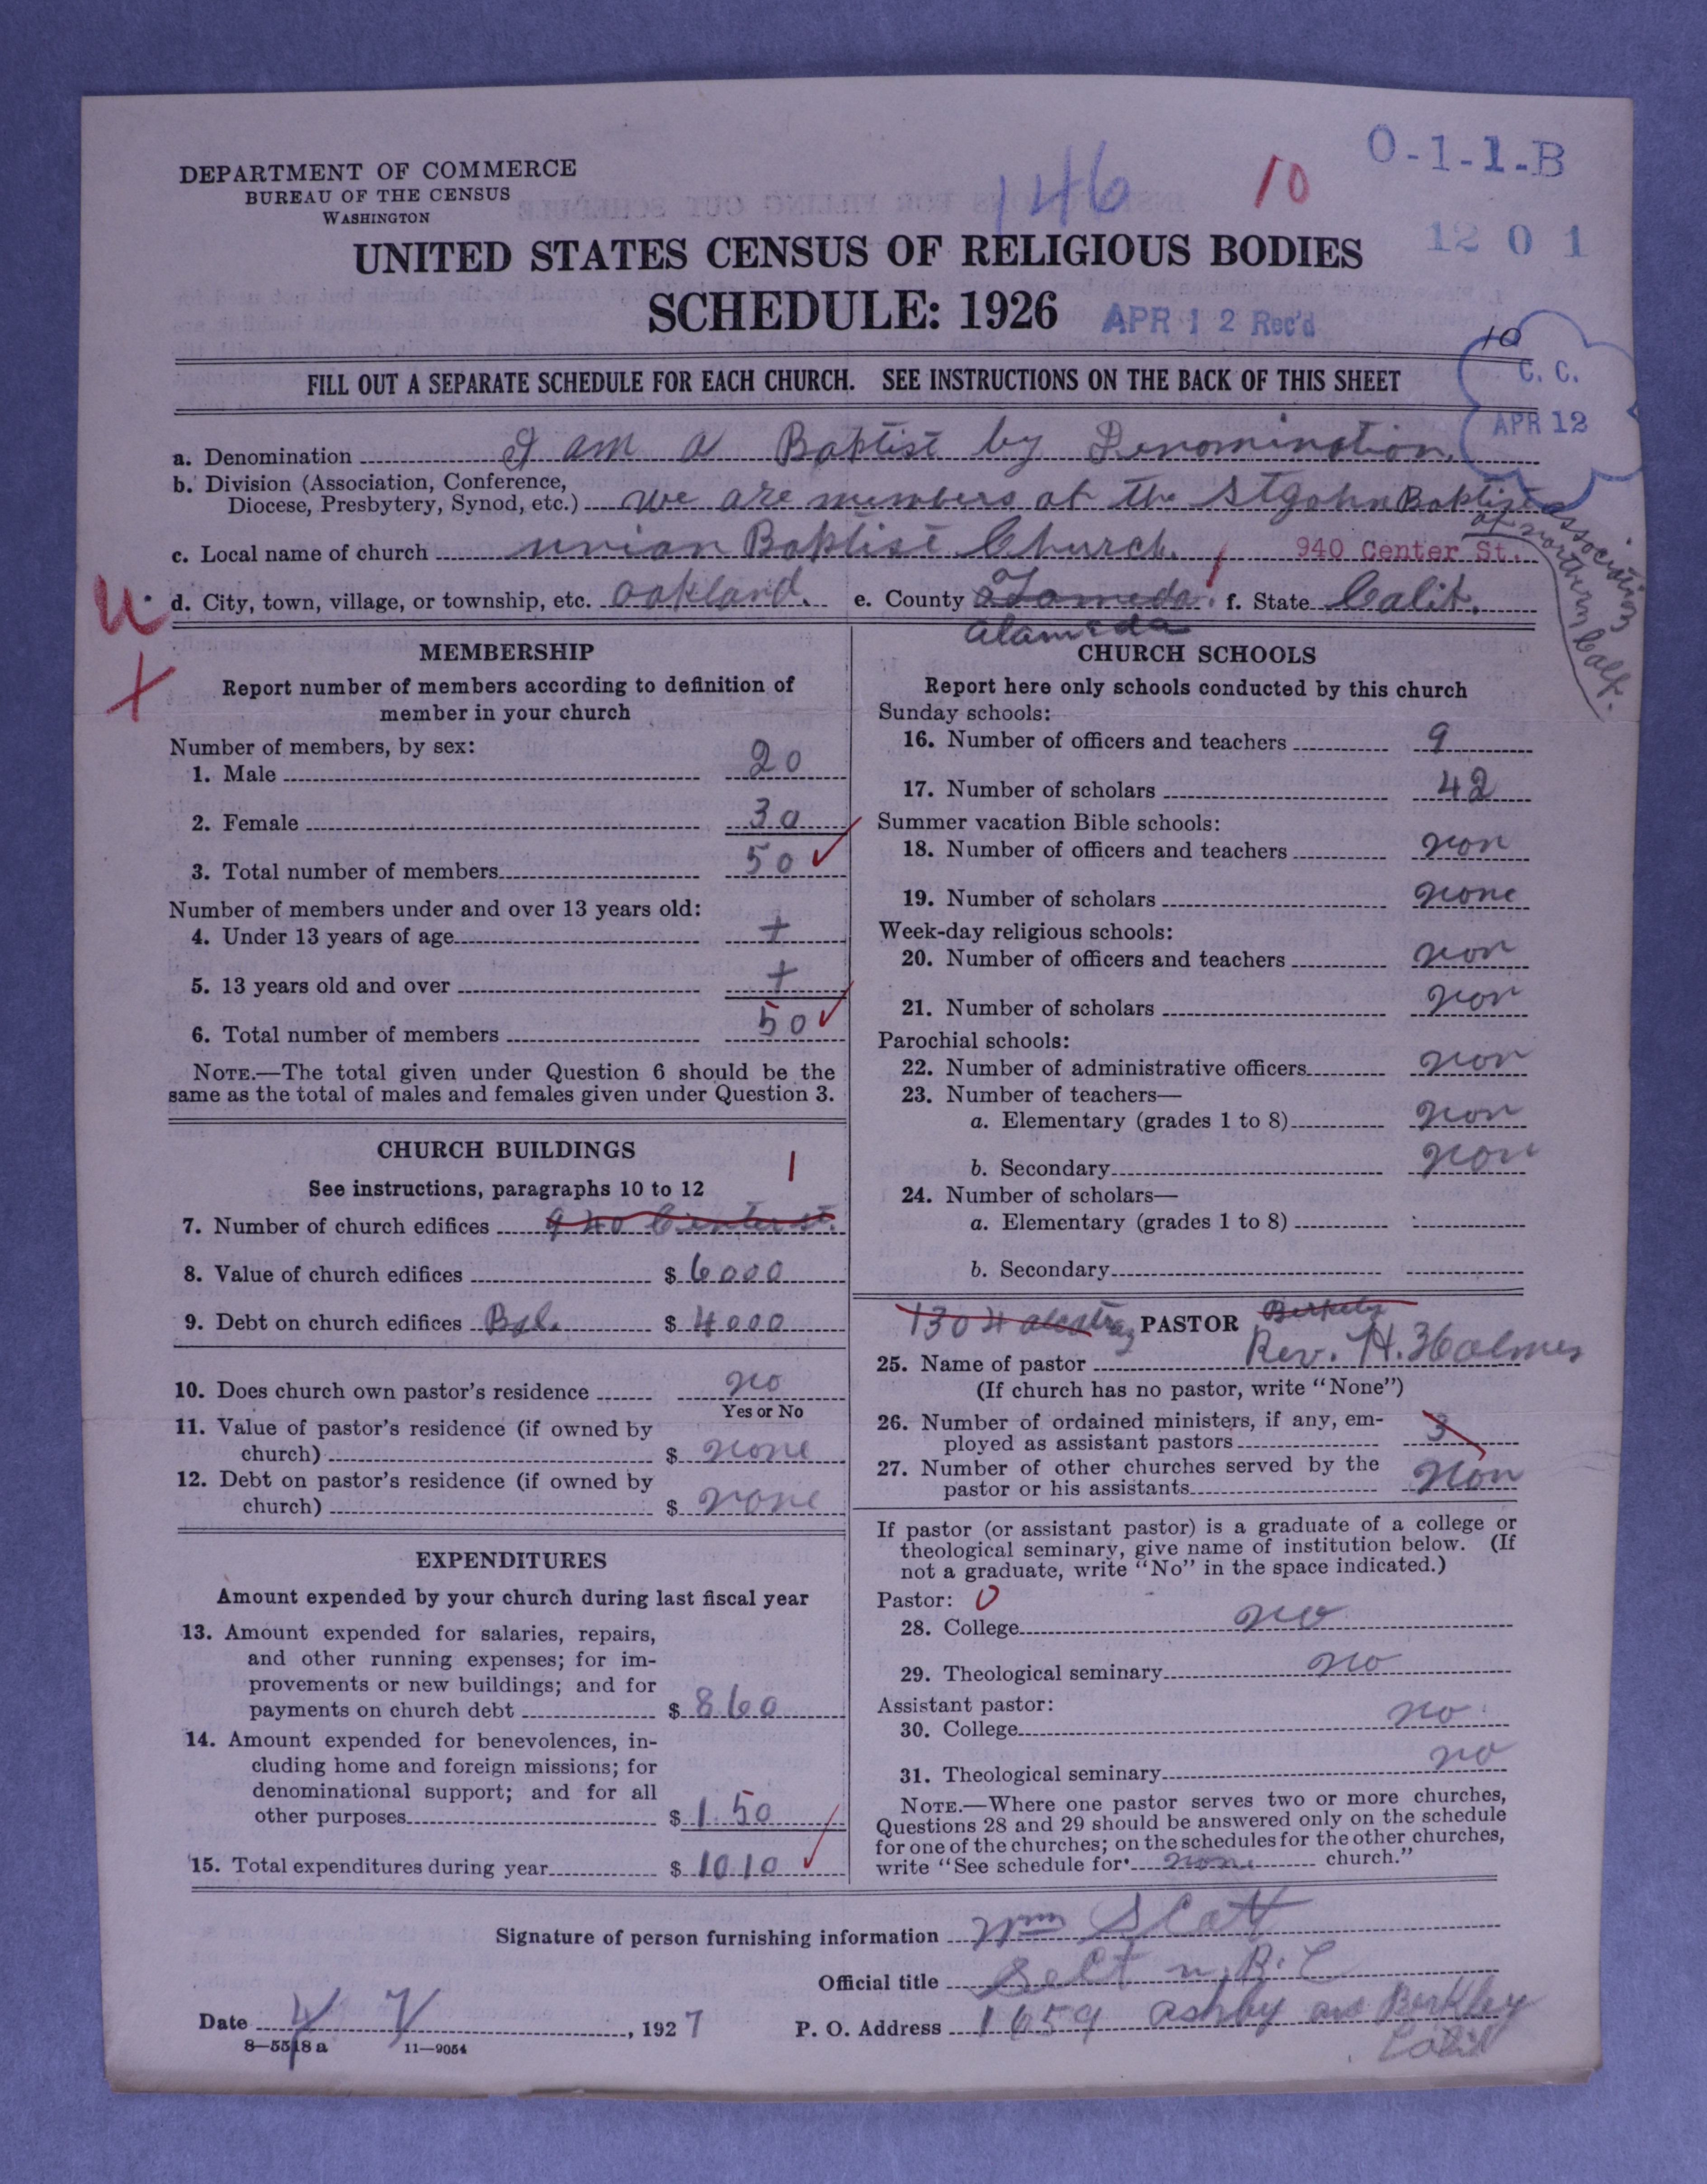 DEPARTMENT OF COMMERCE
BUREAU OF THE CENSUS
WASHINGTON
146
10
O-1-1-B
12 0 1
UNITED STATES CENSUS OF RELIGIOUS BODIES
SCHEDULE: 1926
APR 12 Rec'd
10
C. C.
APR 12
FILL OUT A SEPARATE SCHEDULE FOR EACH CHURCH. SEE INSTRUCTIONS ON THE BACK OF THIS SHEET
a. Denomination I am a Baptist by Denomination.
b. Division (Association, Conference,
Diocese, Presbytery, Synod, etc.) we are members of the St John Baptist Association
of northern Calf.
c. Local name of church union Baptist Church. 940 Center St.
U
d. City, town, village, or township, etc. Oakland. e. County alameda f. State Calif.
alameda
MEMBERSHIP
Report number of members according to definition of
member in your church
Number of members, by sex:
1. Male 20
2. Female 30
3. Total number of members 50 ✓
Number of members under and over 13 years old:
4. Under 13 years of age +
5. 13 years old and over +
6. Total number of members 50 ✓
NOTE.—The total given under Question 6 should be the
same as the total of males and females given under Question 3.
CHURCH BUILDINGS
See instructions, paragraphs 10 to 12
1
7. Number of church edifices 940 Center st.
8. Value of church edifices $ 6000
9. Debt on church edifices Bal. $ 4000
10. Does church own pastor's residence no
Yes or No
11. Value of pastor's residence (if owned by
church) $ none
12. Debt on pastor's residence (if owned by
church) $ none
EXPENDITURES
Amount expended by your church during last fiscal year
13. Amount expended for salaries, repairs,
and other running expenses; for im-
provements or new buildings; and for
payments on church debt $ 860
14. Amount expended for benevolences, in-
cluding home and foreign missions; for
denominational support; and for all
other purposes $ 150
15. Total expenditures during year $ 1010 ✓
CHURCH SCHOOLS
Report here only schools conducted by this church
Sunday schools:
16. Number of officers and teachers 9
17. Number of scholars 42
Summer vacation Bible schools:
18. Number of officers and teachers non
19. Number of scholars none
Week-day religious schools:
20. Number of officers and teachers non
21. Number of scholars non
Parochial schools:
22. Number of administrative officers non
23. Number of teachers—
a. Elementary (grades 1 to 8) non
b. Secondary non
24. Number of scholars—
a. Elementary (grades 1 to 8)
b. Secondary
1304 alcatraz PASTOR
25. Name of pastor Rev. H. Holmes
(If church has no pastor, write "None")
26. Number of ordained ministers, if any, em-
ployed as assistant pastors 3
27. Number of other churches served by the
pastor or his assistants non
If pastor (or assistant pastor) is a graduate of a college or
theological seminary, give name of institution below. (If
not a graduate, write "No" in the space indicated.)
Pastor: 0
28. College no
29. Theological seminary no
Assistant pastor:
30. College no
31. Theological seminary no
NOTE.—Where one pastor serves two or more churches,
Questions 28 and 29 should be answered only on the schedule
for one of the churches; on the schedules for the other churches,
write "See schedule for none church."
Signature of person furnishing information Wm Scott
Official title B. C
Date 4 7, 1927 P. O. Address 1659 ashby ave Berkley
Calif
8—5518 a 11—9054